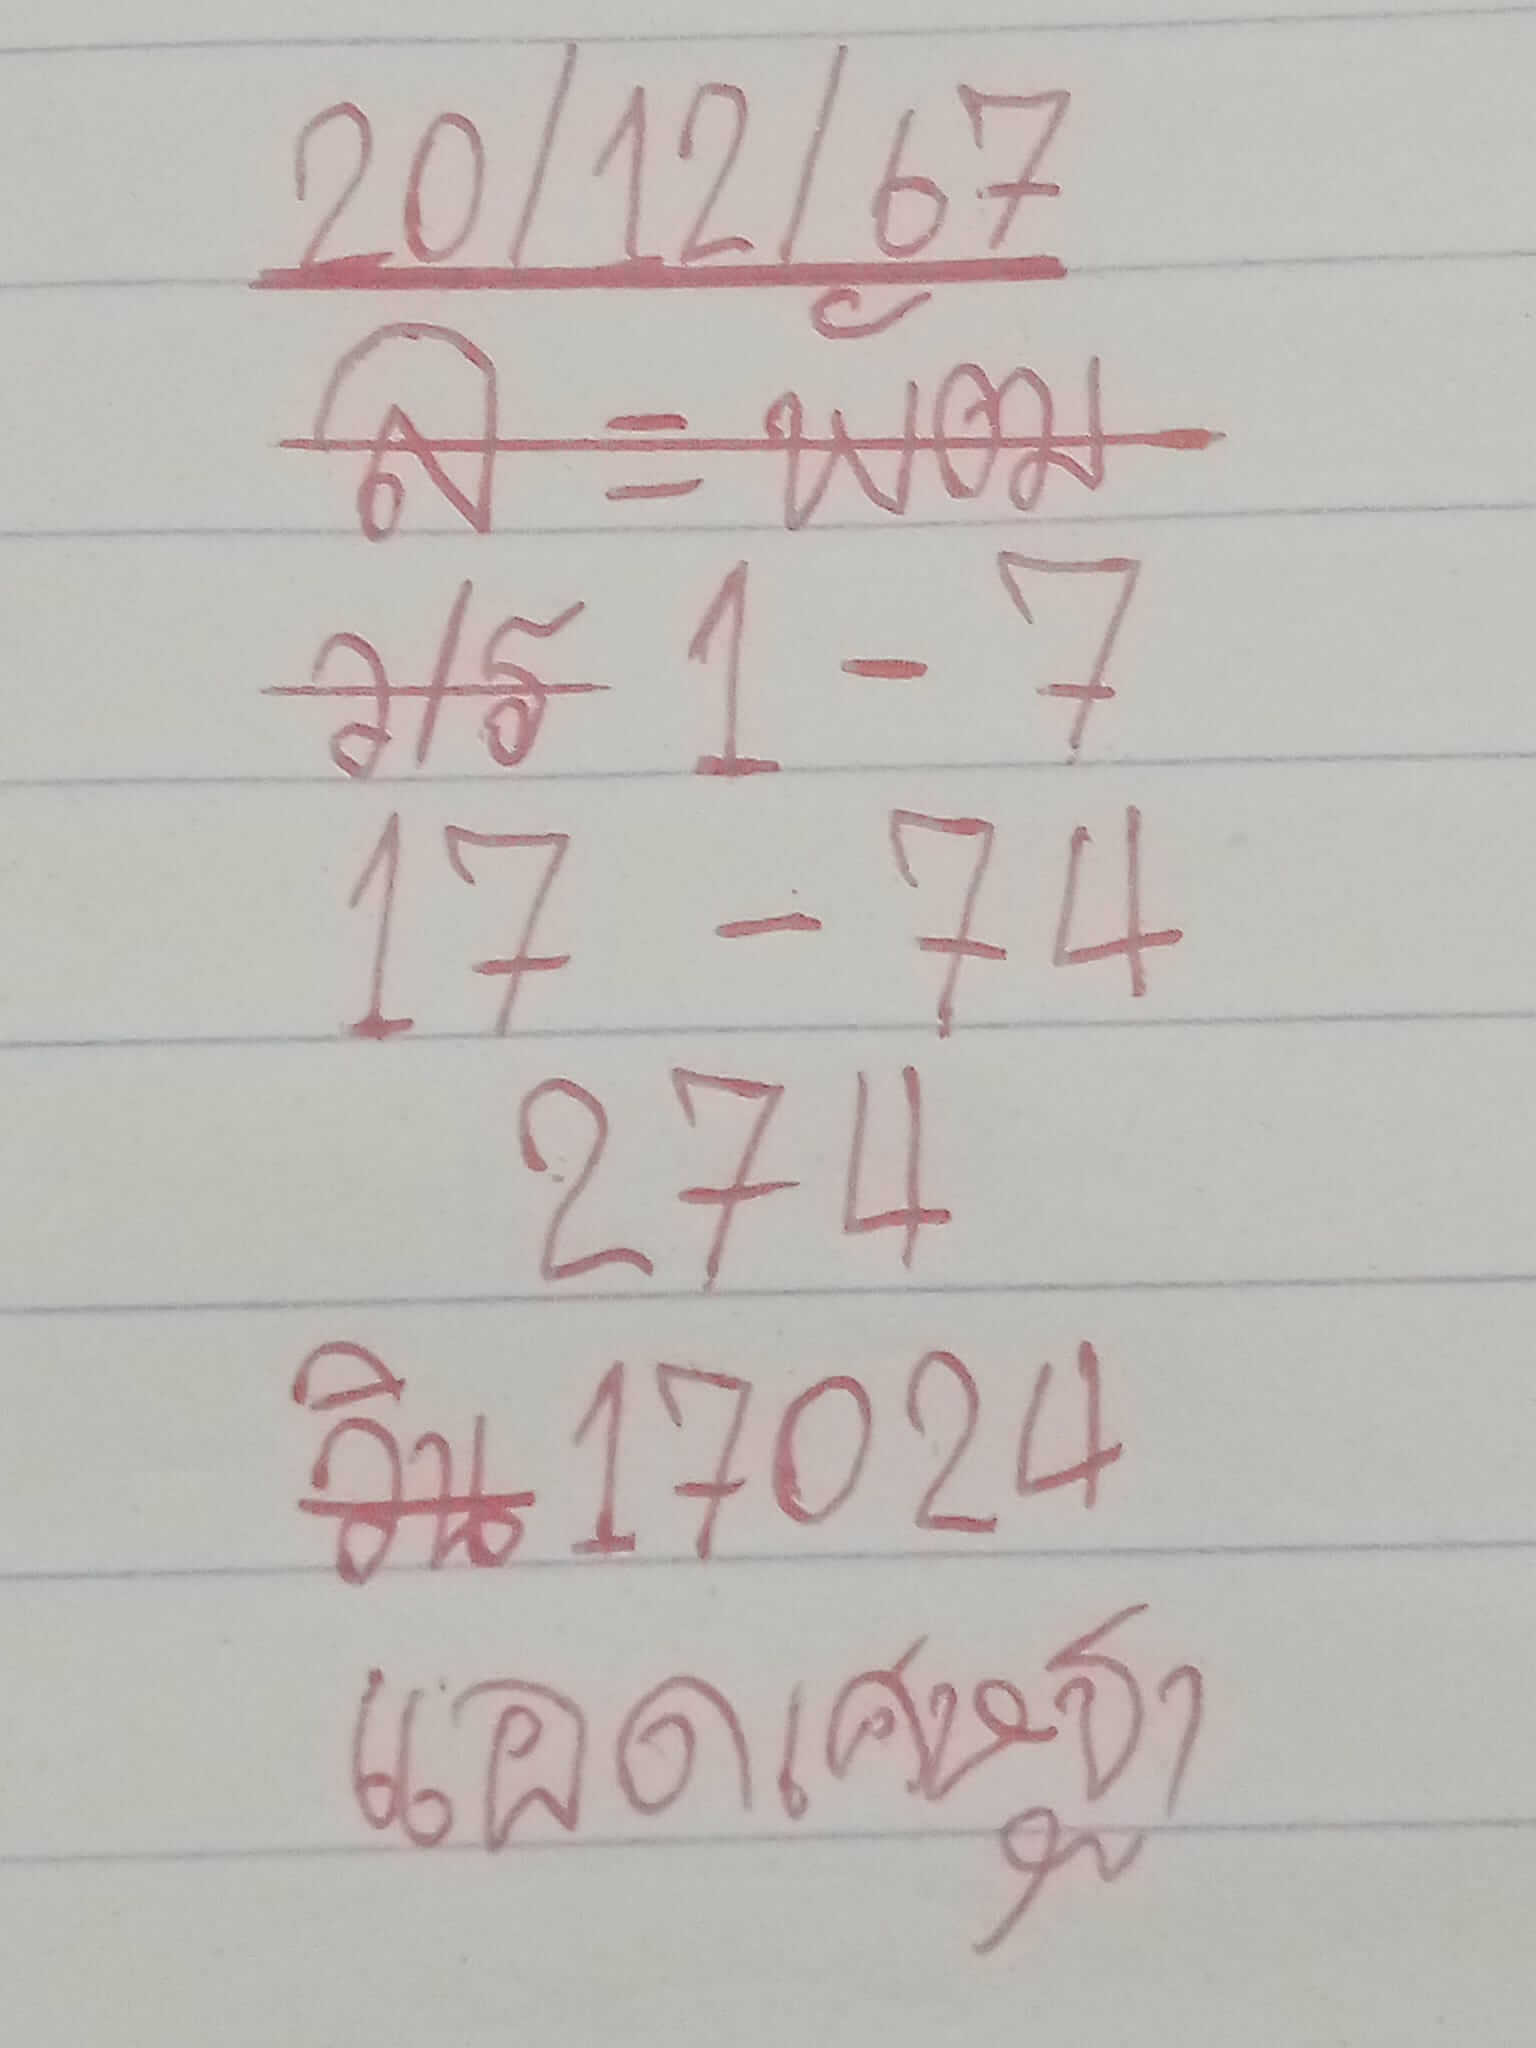 20/12/67
ล = พ้อม
ว/ร 1 - 7
17 - 74
274
วิน 17024
แอดเศรษฐา